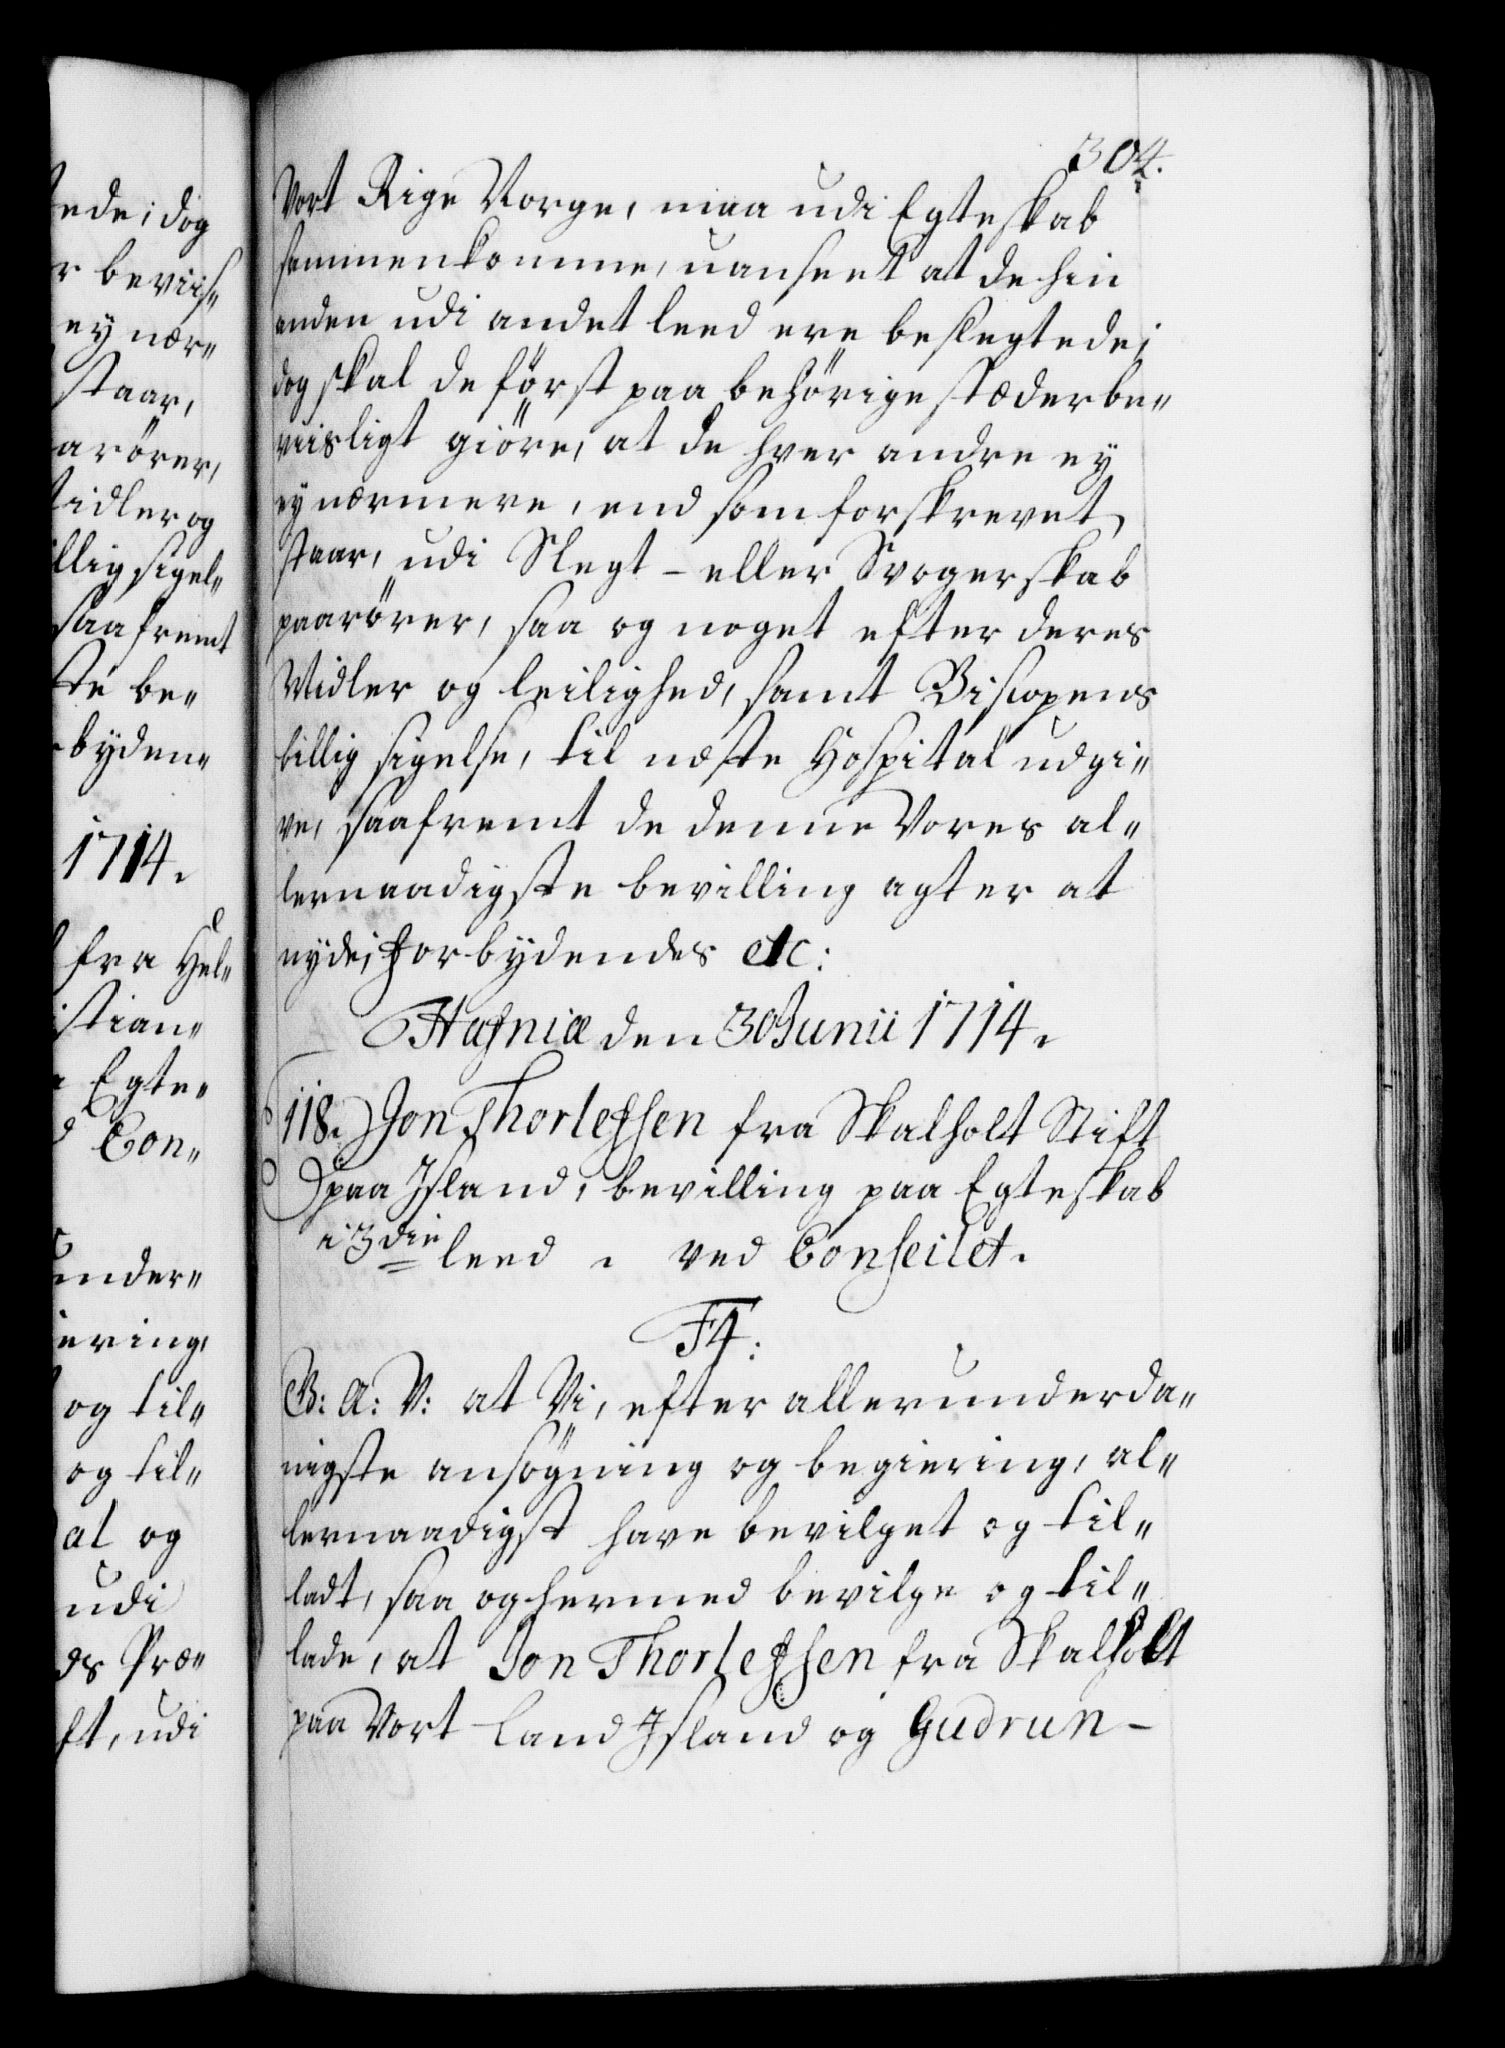 ede; dog
r beviis"
ey nær"
staar,
arörer,
idler og
llig sigel"
saafremt
te be"
byden"
1714.
fra Hel"
istian"
Egte"
Con"
under"
iering,
og til"
og til"
al og
udi
ds Præ"
ft, udi
304.
Vort Rige Norge, maa udi Egteskab
sammenkomme, uanseet at de hin
anden udi andet leed ere beslegtede;
dog skal de först paa behörige stæder be"
viisligt giöre, at de hver andre ey
ey nærmere, end som forskrevet
staar, udi Slegt- eller Svogerskab
paarörer, saa og noget efter deres
Midler og leilighed, samt Biscopens
billig sigelse, til næste Hospital udgi"
ve, saafremt de denne Vores al"
lernaadigste bevilling agter at
nyde; Forbydendes etc:
Hafniæ den 30 Junii 1714.
118. Jon Thorlefsen fra Skalholt Stift
paa Island, bevilling paa Egteskab
i 3die leed . ved Conseilet.
F4:
G: A: V: at Vi, efter allerunderda"
nigste ansögning og begiering, al"
lernaadigst have bevilget og til"
ladt, saa og hermed bevilge og til"
lade, at Jon Thorlefsen fra Skalholt
paa Vort Land Island og Gudrun-